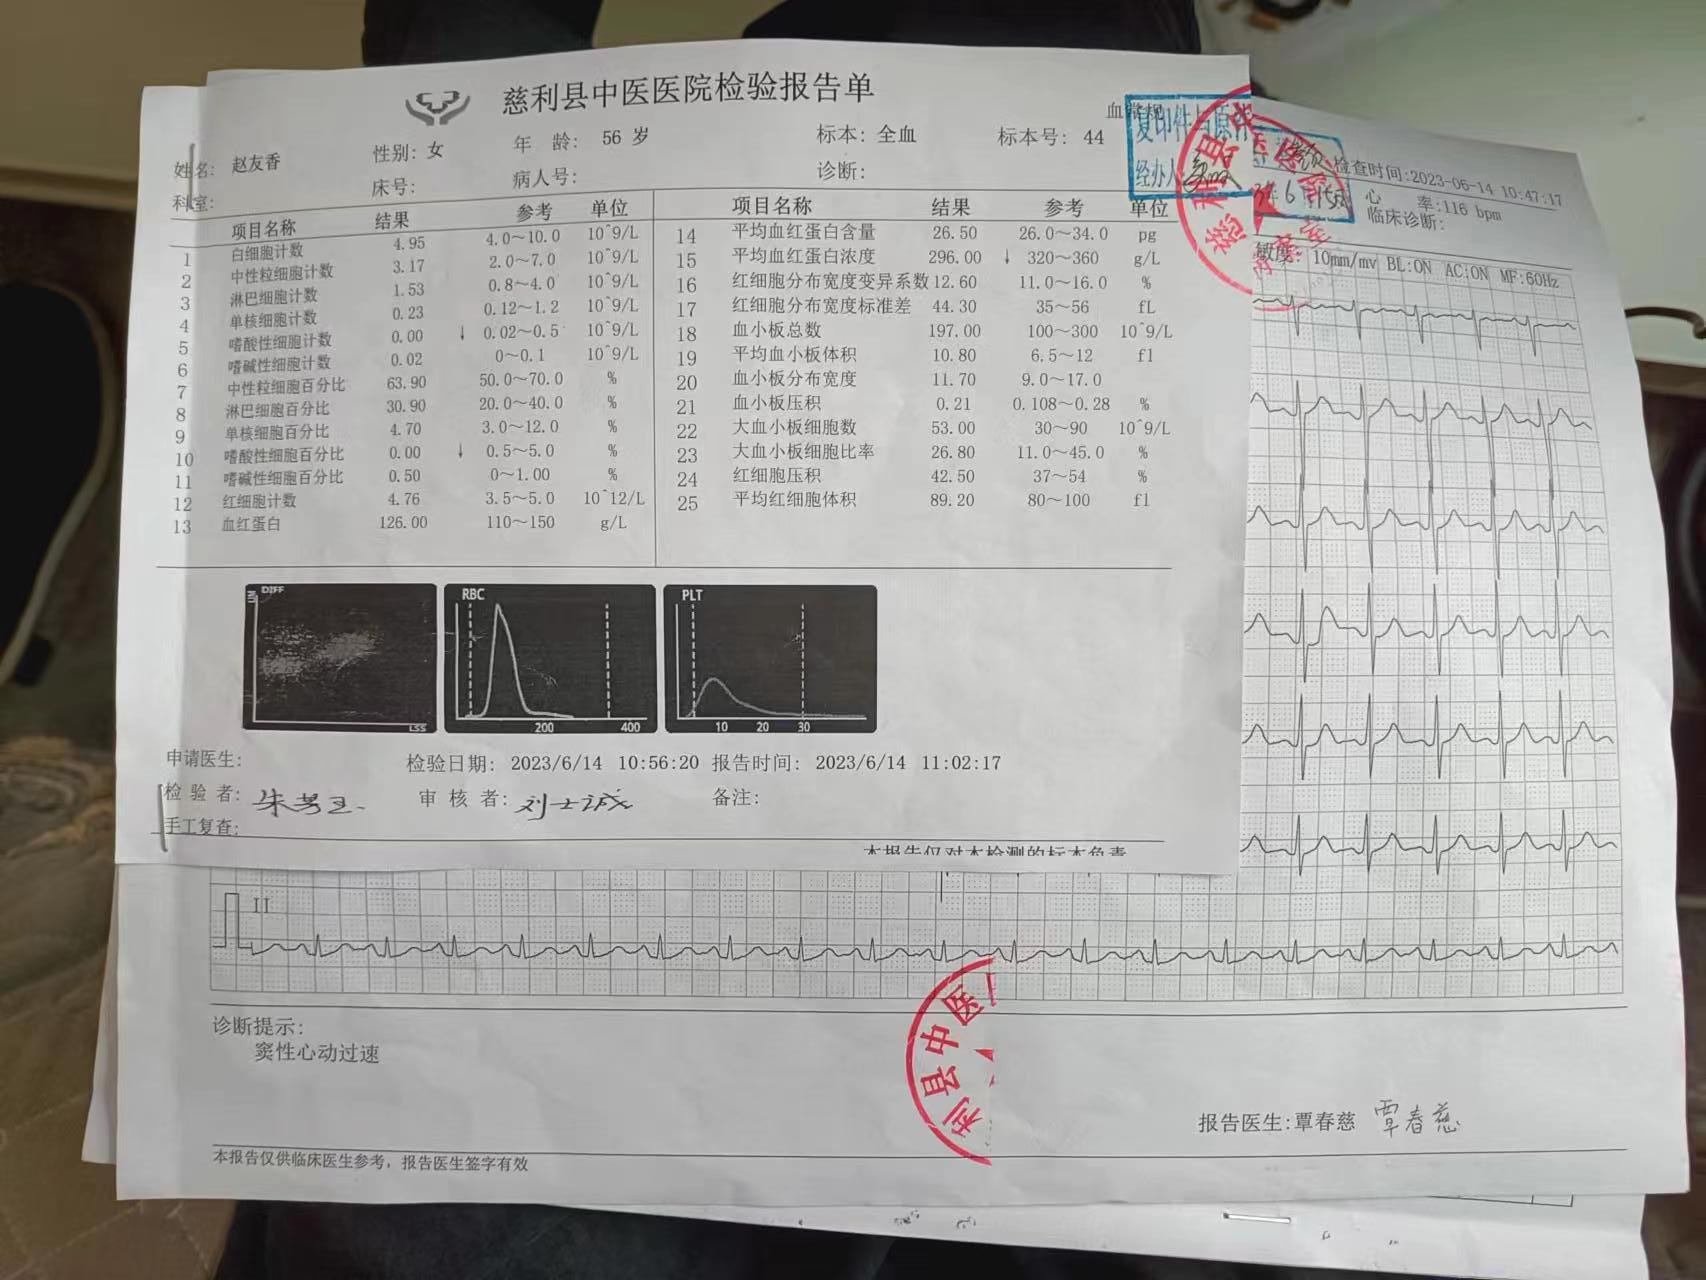 慈利县中医医院检验报告单
血常规
姓名: 赵友香 性别: 女 年 龄: 56 岁 标本: 全血 标本号: 44
科室: 床号: 病人号: 诊断:
项目名称 结果 参考 单位
1 白细胞计数 4.95 4.0~10.0 10^9/L
2 中性粒细胞计数 3.17 2.0~7.0 10^9/L
3 淋巴细胞计数 1.53 0.8~4.0 10^9/L
4 单核细胞计数 0.23 0.12~1.2 10^9/L
5 嗜酸性细胞计数 0.00 ↓ 0.02~0.5 10^9/L
6 嗜碱性细胞计数 0.02 0~0.1 10^9/L
7 中性粒细胞百分比 63.90 50.0~70.0 %
8 淋巴细胞百分比 30.90 20.0~40.0 %
9 单核细胞百分比 4.70 3.0~12.0 %
10 嗜酸性细胞百分比 0.00 ↓ 0.5~5.0 %
11 嗜碱性细胞百分比 0.50 0~1.00 %
12 红细胞计数 4.76 3.5~5.0 10^12/L
13 血红蛋白 126.00 110~150 g/L
项目名称 结果 参考 单位
14 平均血红蛋白含量 26.50 26.0~34.0 pg
15 平均血红蛋白浓度 296.00 ↓ 320~360 g/L
16 红细胞分布宽度变异系数 12.60 11.0~16.0 %
17 红细胞分布宽度标准差 44.30 35~56 fL
18 血小板总数 197.00 100~300 10^9/L
19 平均血小板体积 10.80 6.5~12 fl
20 血小板分布宽度 11.70 9.0~17.0
21 血小板压积 0.21 0.108~0.28 %
22 大血小板细胞数 53.00 30~90 10^9/L
23 大血小板细胞比率 26.80 11.0~45.0 %
24 红细胞压积 42.50 37~54 %
25 平均红细胞体积 89.20 80~100 fl
DIFF
LSS
RBC
200 400
PLT
10 20 30
申请医生: 检验日期: 2023/6/14 10:56:20 报告时间: 2023/6/14 11:02:17
检 验 者: 审 核 者: 刘士诚 备注:
手工复查:
本报告仅对本检测的标本负责
复印件与原件
经办人
检查时间:2023-06-14 10:47:17
心 率:116 bpm
临床诊断:
敏度: 10mm/mv BL:ON AC:ON MF:60Hz
II
诊断提示:
窦性心动过速
利县中医
报告医生:覃春慈 覃春慈
本报告仅供临床医生参考, 报告医生签字有效